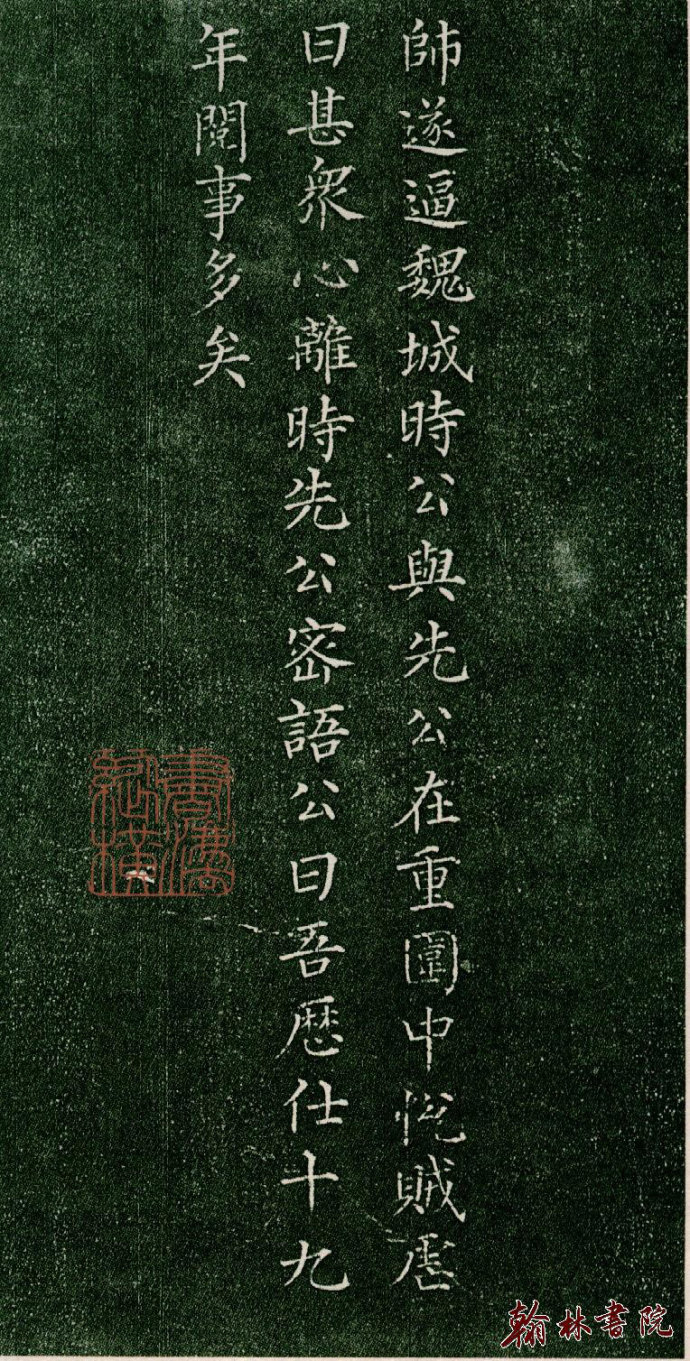 師遂逼魏城時公與先公在重圍中悅賊虐
日甚衆心離時先公密語公曰吾歷仕十九
年閱事多矣
翰林書院